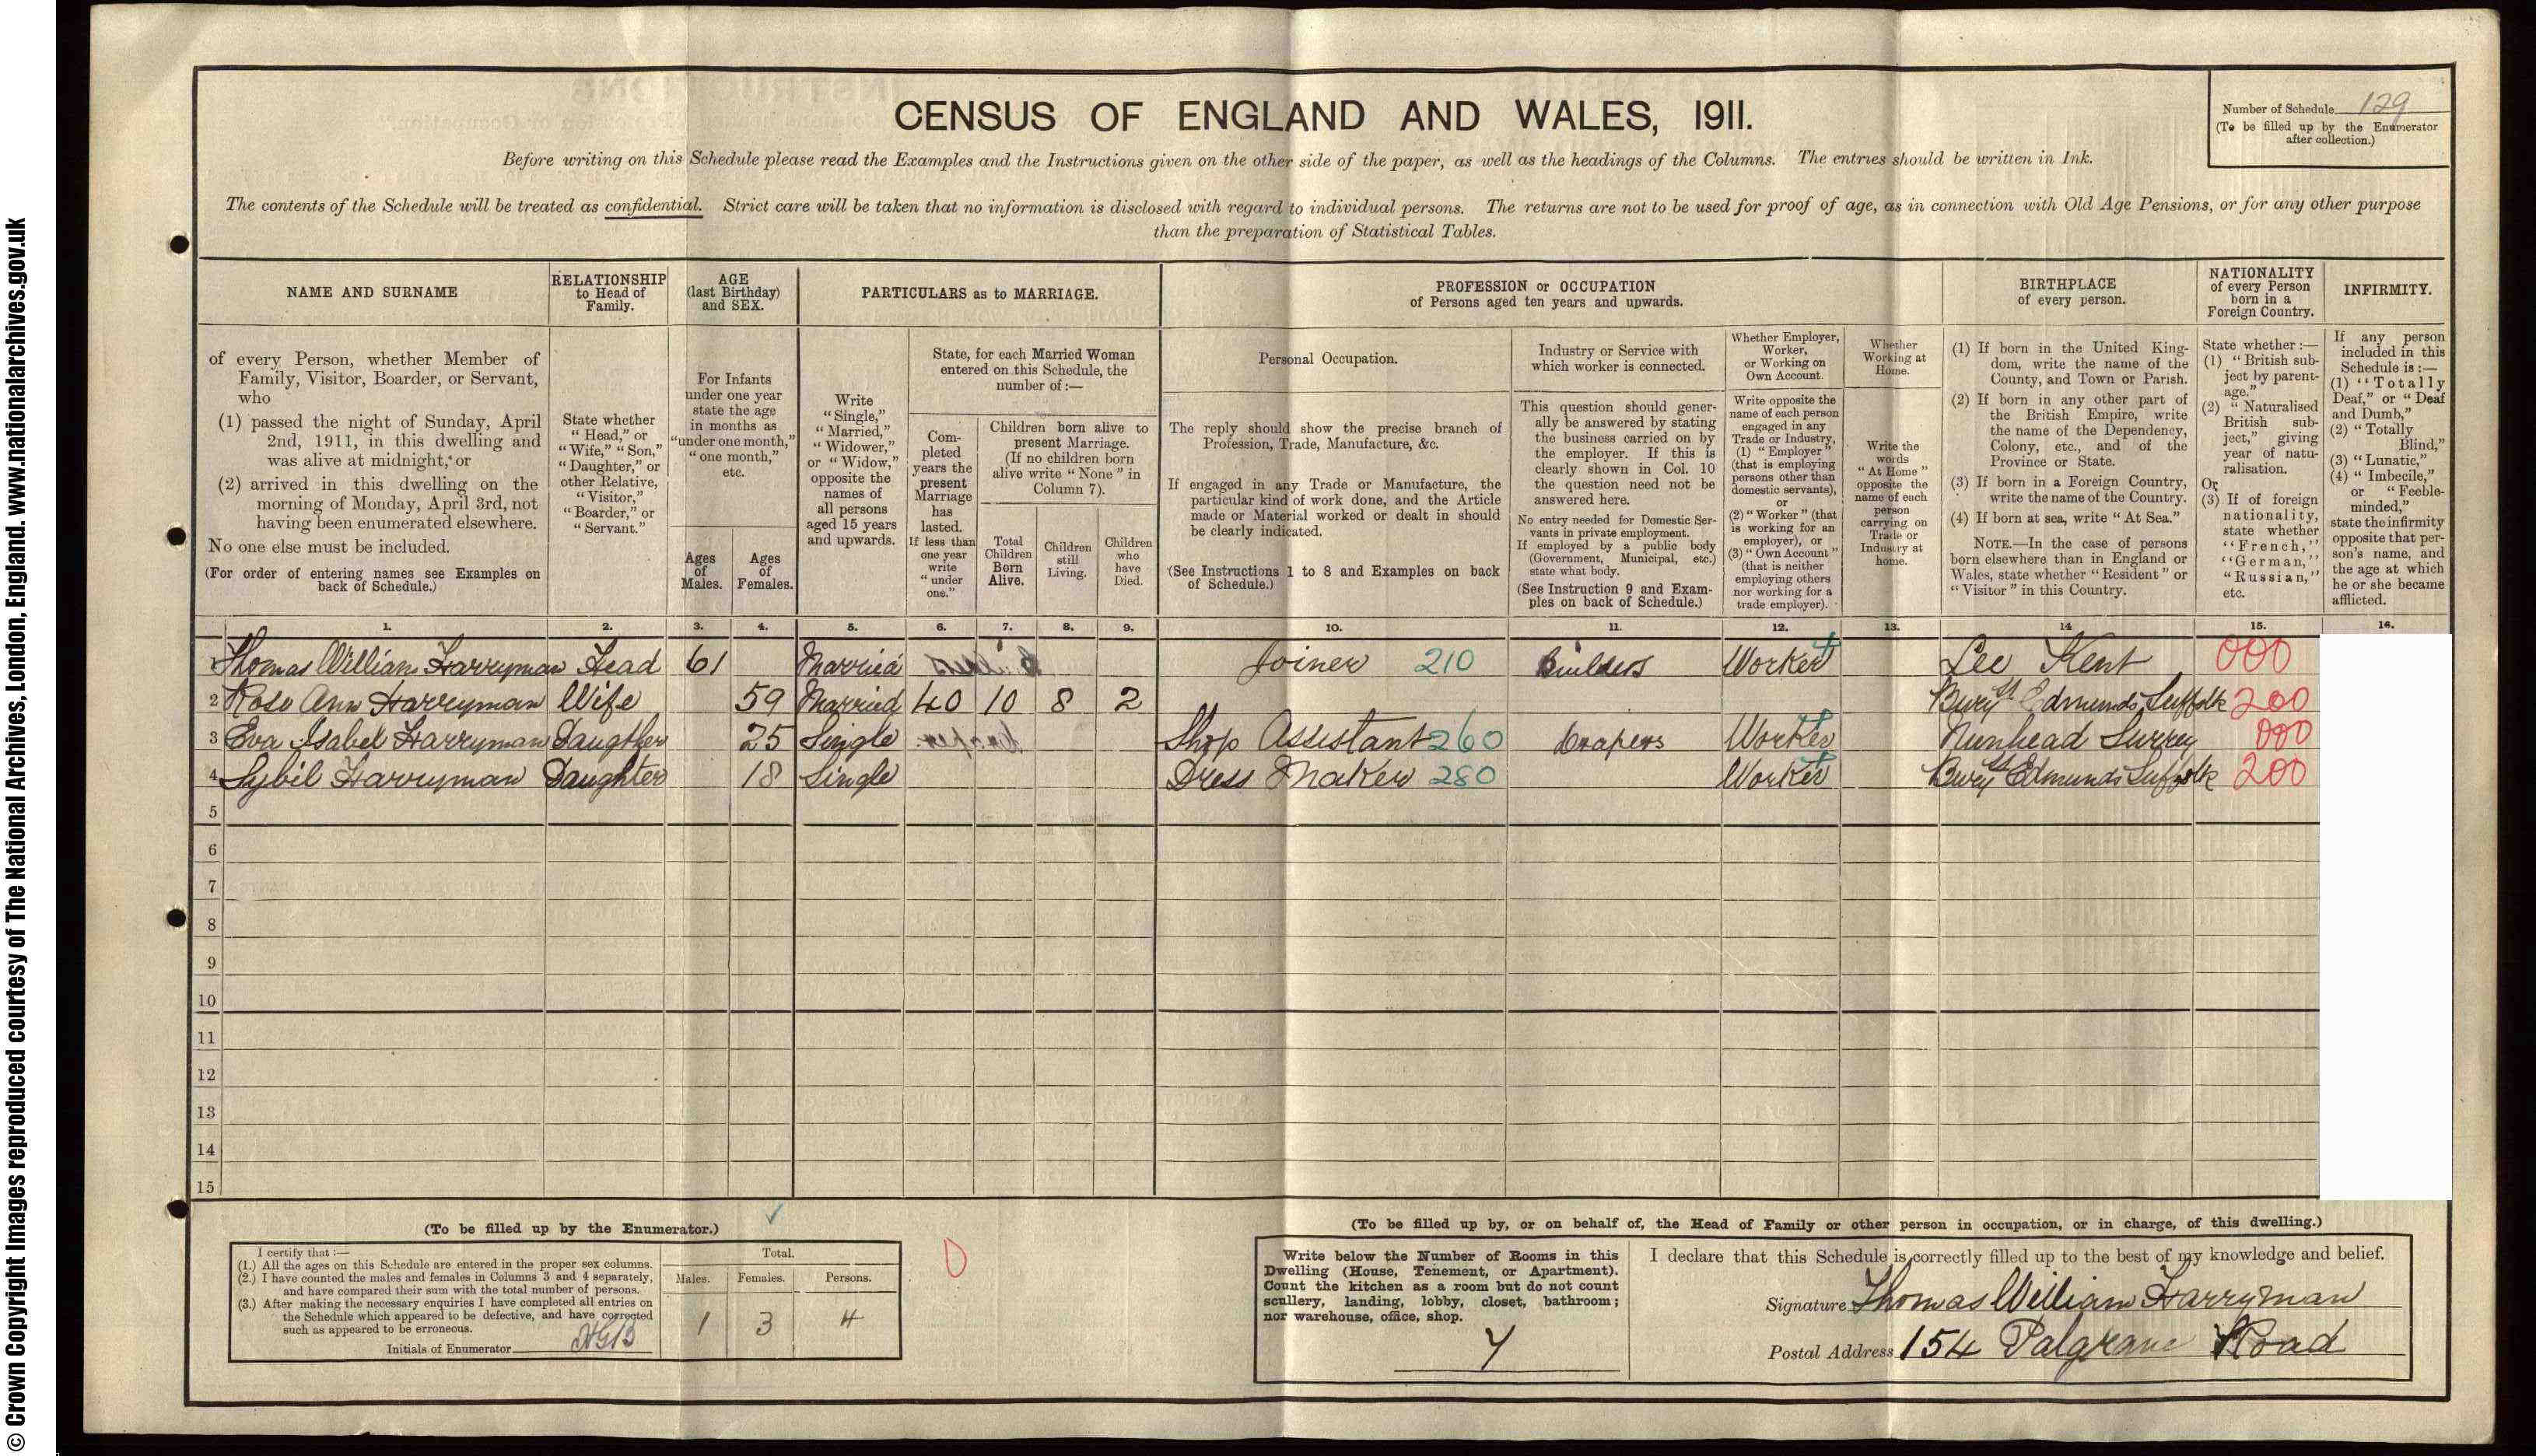 CENSUS OF ENGLAND AND WALES, 1911.
Number of Schedule 129
(To be filled up by the Enumerator
after collection.)
Before writing on this Schedule please read the Examples and the Instructions given on the other side of the paper, as well as the headings of the Columns. The entries should be written in Ink.
The contents of the Schedule will be treated as confidential. Strict care will be taken that no information is disclosed with regard to individual persons. The returns are not to be used for proof of age, as in connection with Old Age Pensions, or for any other purpose
than the preparation of Statistical Tables.
NAME AND SURNAME
of every Person, whether Member of
Family, Visitor, Boarder, or Servant,
who
(1) passed the night of Sunday, April
2nd, 1911, in this dwelling and
was alive at midnight, or
(2) arrived in this dwelling on the
morning of Monday, April 3rd, not
having been enumerated elsewhere.
No one else must be included.
(For order of entering names see Examples on
back of Schedule.)
RELATIONSHIP
to Head of
Family.
State whether
"Head," or
"Wife," "Son,"
"Daughter," or
other Relative,
"Visitor,"
"Boarder," or
"Servant."
AGE
(last Birthday)
and SEX.
For Infants
under one year
state the age
in months as
"under one month,"
"one month,"
etc.
Ages
of
Males.
Ages
of
Females.
PARTICULARS as to MARRIAGE.
Write
"Single,"
"Married,"
"Widower,"
or "Widow,"
opposite the
names of
all persons
aged 15 years
and upwards.
State, for each Married Woman
entered on this Schedule, the
number of :—
Com-
pleted
years the
present
Marriage
has
lasted.
If less than
one year
write
"under
one."
Children born alive to
present Marriage.
(If no children born
alive write "None" in
Column 7).
Total
Children
Born
Alive.
Children
still
Living.
Children
who
have
Died.
PROFESSION or OCCUPATION
of Persons aged ten years and upwards.
Personal Occupation.
The reply should show the precise branch of
Profession, Trade, Manufacture, &c.
If engaged in any Trade or Manufacture, the
particular kind of work done, and the Article
made or Material worked or dealt in should
be clearly indicated.
(See Instructions 1 to 8 and Examples on back
of Schedule.)
Industry or Service with
which worker is connected.
This question should gener-
ally be answered by stating
the business carried on by
the employer. If this is
clearly shown in Col. 10
the question need not be
answered here.
No entry needed for Domestic Ser-
vants in private employment.
If employed by a public body
(Government, Municipal, etc.)
state what body.
(See Instruction 9 and Exam-
ples on back of Schedule.)
Whether Employer,
Worker,
or Working on
Own Account.
Write opposite the
name of each person
engaged in any
Trade or Industry,
(1) "Employer"
(that is employing
persons other than
domestic servants),
or
(2) "Worker" (that
is working for an
employer), or
(3) "Own Account"
(that is neither
employing others
nor working for a
trade employer).
Whether
Working at
Home.
Write the
words
"At Home"
opposite the
name of each
person
carrying on
Trade or
Industry at
home.
BIRTHPLACE
of every person.
(1) If born in the United King-
dom, write the name of the
County, and Town or Parish.
(2) If born in any other part of
the British Empire, write
the name of the Dependency,
Colony, etc., and of the
Province or State.
(3) If born in a Foreign Country,
write the name of the Country.
(4) If born at sea, write "At Sea."
NOTE.—In the case of persons
born elsewhere than in England or
Wales, state whether "Resident" or
"Visitor" in this Country.
NATIONALITY
of every Person
born in a
Foreign Country.
State whether :—
(1) "British sub-
ject by parent-
age."
(2) "Naturalised
British sub-
ject," giving
year of natu-
ralisation.
Or
(3) If of foreign
nationality,
state whether
"French,"
"German,"
"Russian,"
etc.
INFIRMITY.
If any person
included in this
Schedule is :—
(1) "Totally
Deaf," or "Deaf
and Dumb,"
(2) "Totally
Blind,"
(3) "Lunatic,"
(4) "Imbecile,"
or "Feeble-
minded,"
state the infirmity
opposite that per-
son's name, and
the age at which
he or she became
afflicted.
1. 2. 3. 4. 5. 6. 7. 8. 9. 10. 11. 12. 13. 14 15. 16.
1 Thomas William Harryman Head 61 Married Joiner 210 Builders Worker Lee Kent 000
2 Rose Ann Harryman Wife 59 Married 40 10 8 2 Bury St Edmunds Suffolk 200
3 Eva Isabel Harryman Daugther 25 Single Shop Assistant 260 Drapers Worker Nunhead Surrey 000
4 Sybil Harryman Daughter 18 Single Dress Maker 280 Worker Bury St Edmunds Suffolk 200
5
6
7
8
9
10
11
12
13
14
15
(To be filled up by the Enumerator.)
I certify that :—
(1.) All the ages on this Schedule are entered in the proper sex columns.
(2.) I have counted the males and females in Columns 3 and 4 separately,
and have compared their sum with the total number of persons.
(3.) After making the necessary enquiries I have completed all entries on
the Schedule which appeared to be defective, and have corrected
such as appeared to be erroneous.
Initials of Enumerator
Total.
Males. Females. Persons.
1 3 4
(To be filled up by, or on behalf of, the Head of Family or other person in occupation, or in charge, of this dwelling.)
Write below the Number of Rooms in this
Dwelling (House, Tenement, or Apartment).
Count the kitchen as a room but do not count
scullery, landing, lobby, closet, bathroom;
nor warehouse, office, shop.
I declare that this Schedule is correctly filled up to the best of my knowledge and belief.
Signature Thomas William Harryman
Postal Address 154 Palgrave Road
© Crown Copyright Images reproduced courtesy of The National Archives, London, England. www.nationalarchives.gov.uk